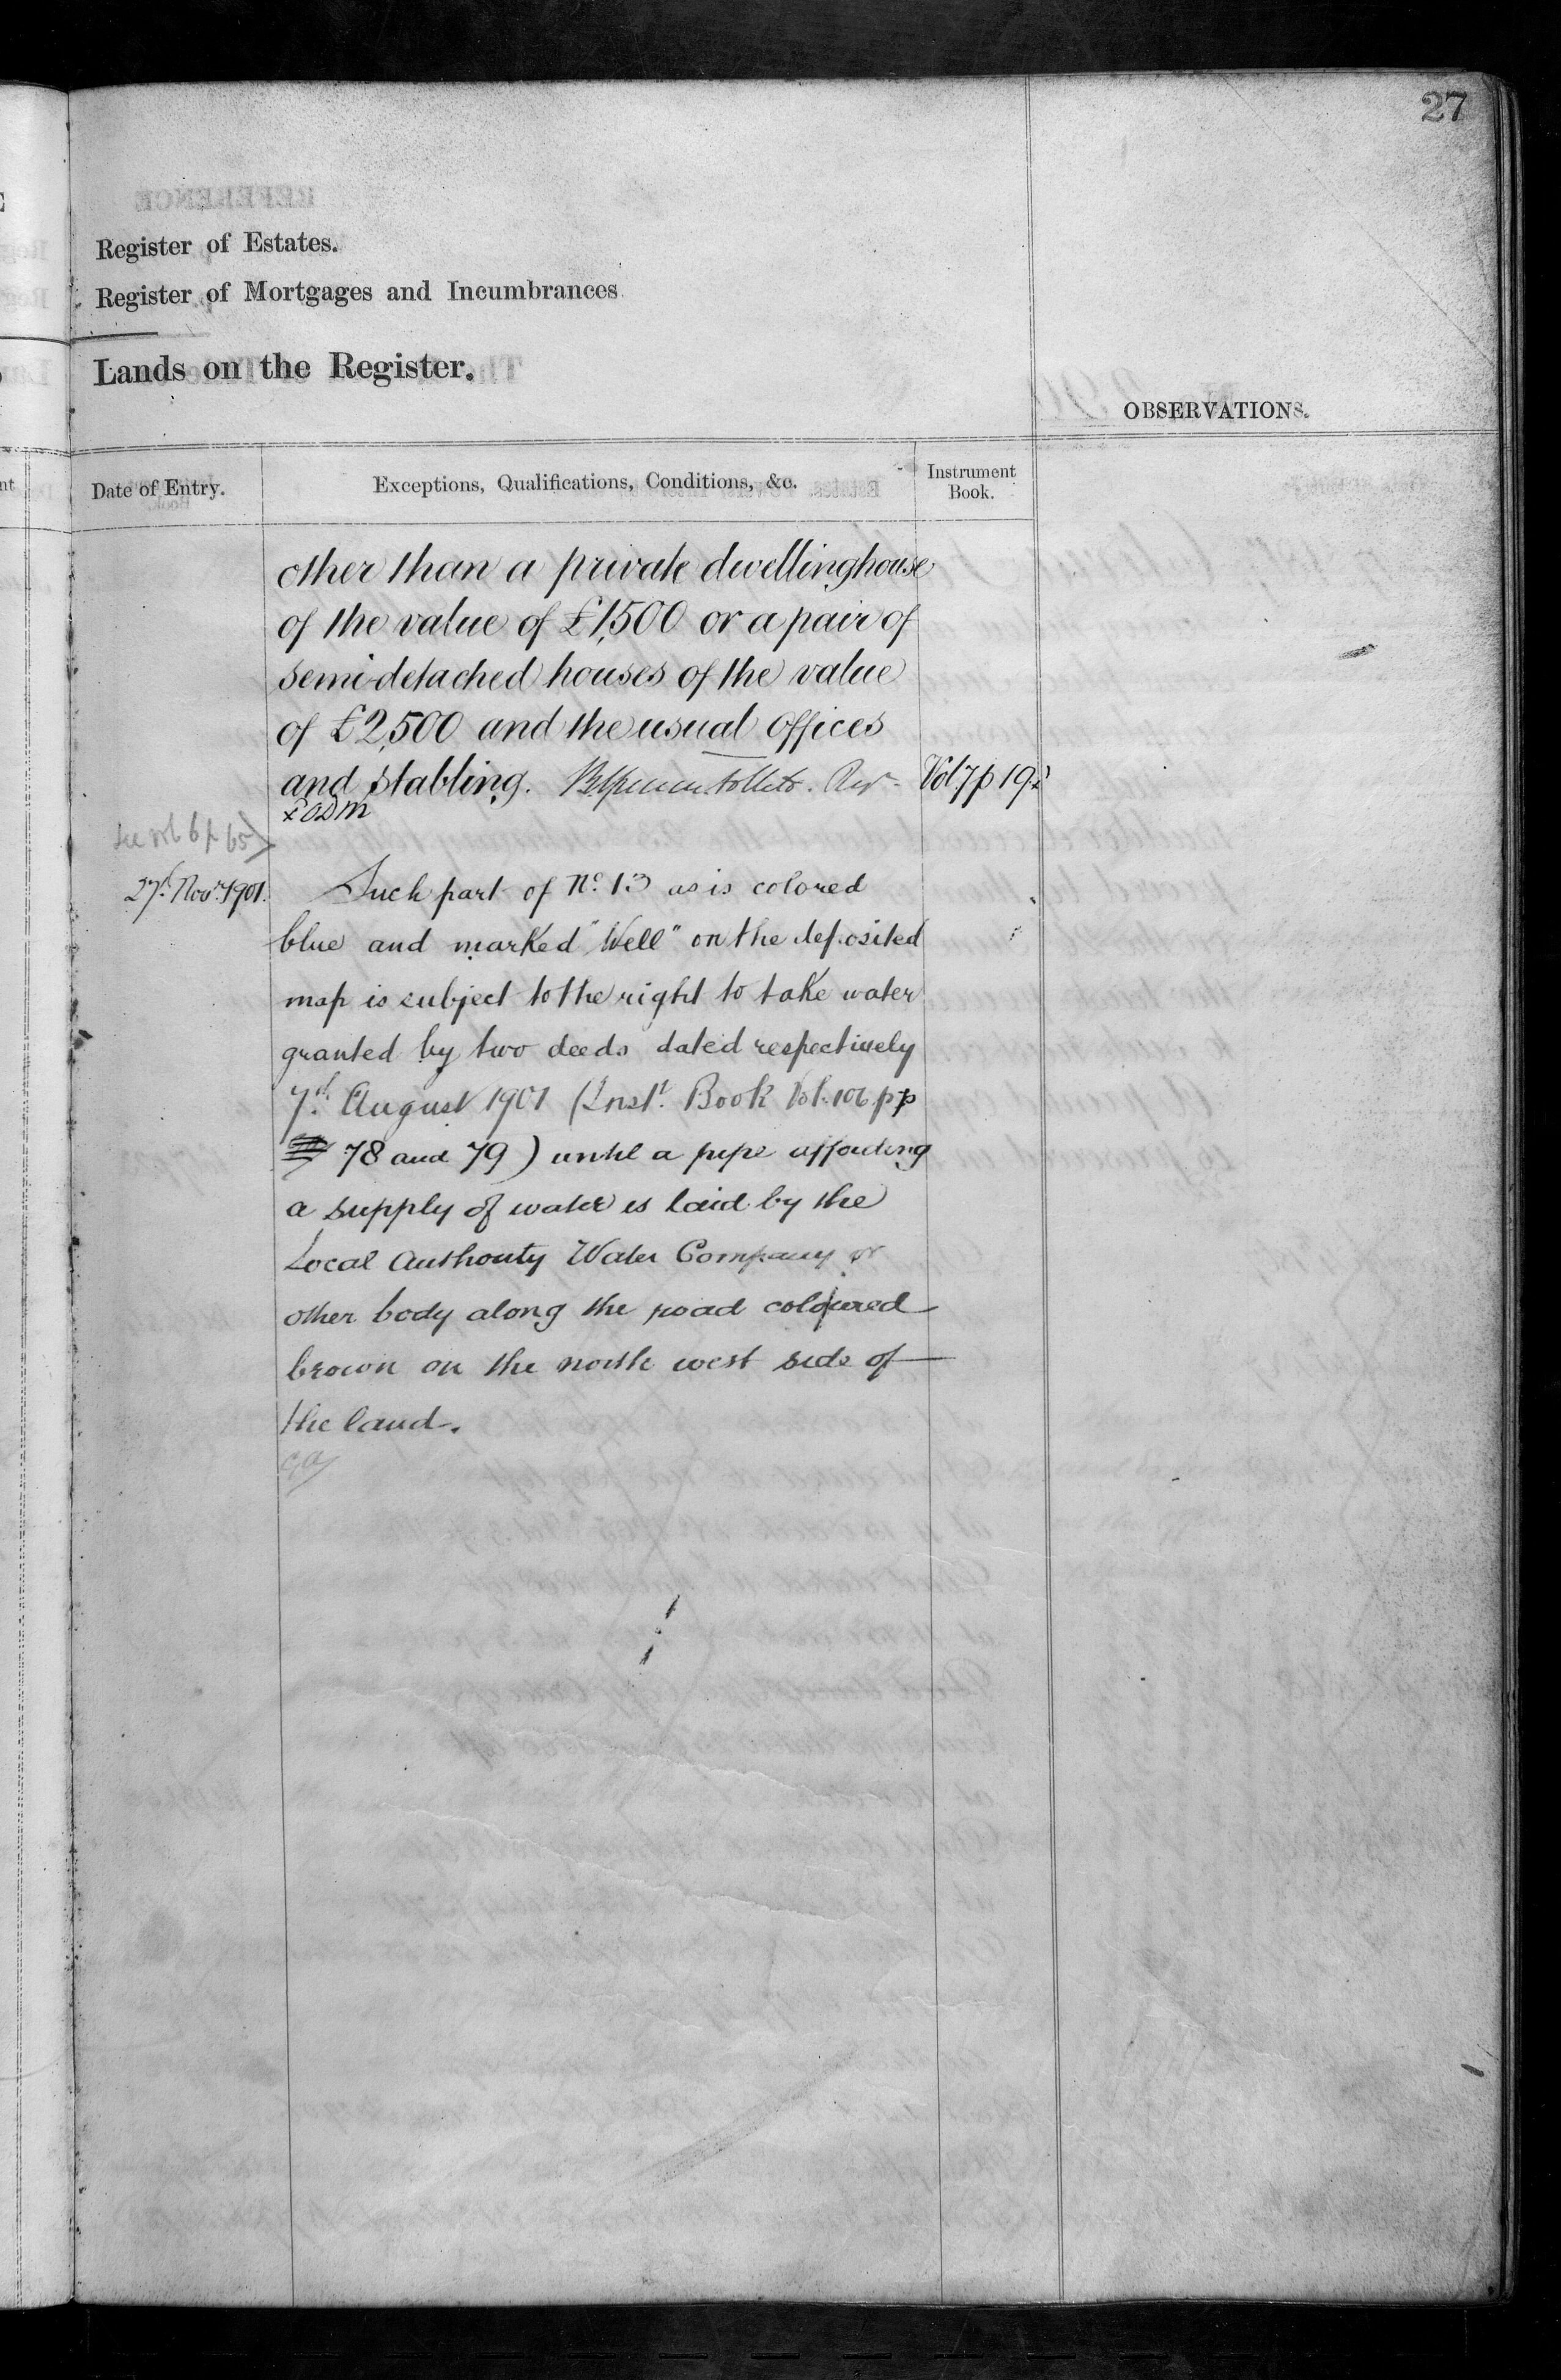 27
Register of Estates.
Register of Mortgages and Incumbrances
Lands on the Register.
OBSERVATIONS.
Date of Entry.
Exceptions, Qualifications, Conditions, &c.
Instrument
Book.
other than a private dwellinghouse
of the value of £1,500 or a pair of
semi-detached houses of the value
of £2,500 and the usual offices
and stabling.
Vol 7 p 19
see vol 6 p 65
27th Novr 1901.
Such part of No. 13 as is colored
blue and marked "Well" on the deposited
map is subject to the right to take water
granted by two deeds dated respectively
7th August 1901 (Inst. Book Vol. 106 pp
78 and 79) until a pipe affording
a supply of water is laid by the
Local Authority Water Company or
other body along the road coloured
brown on the north west side of
the land.